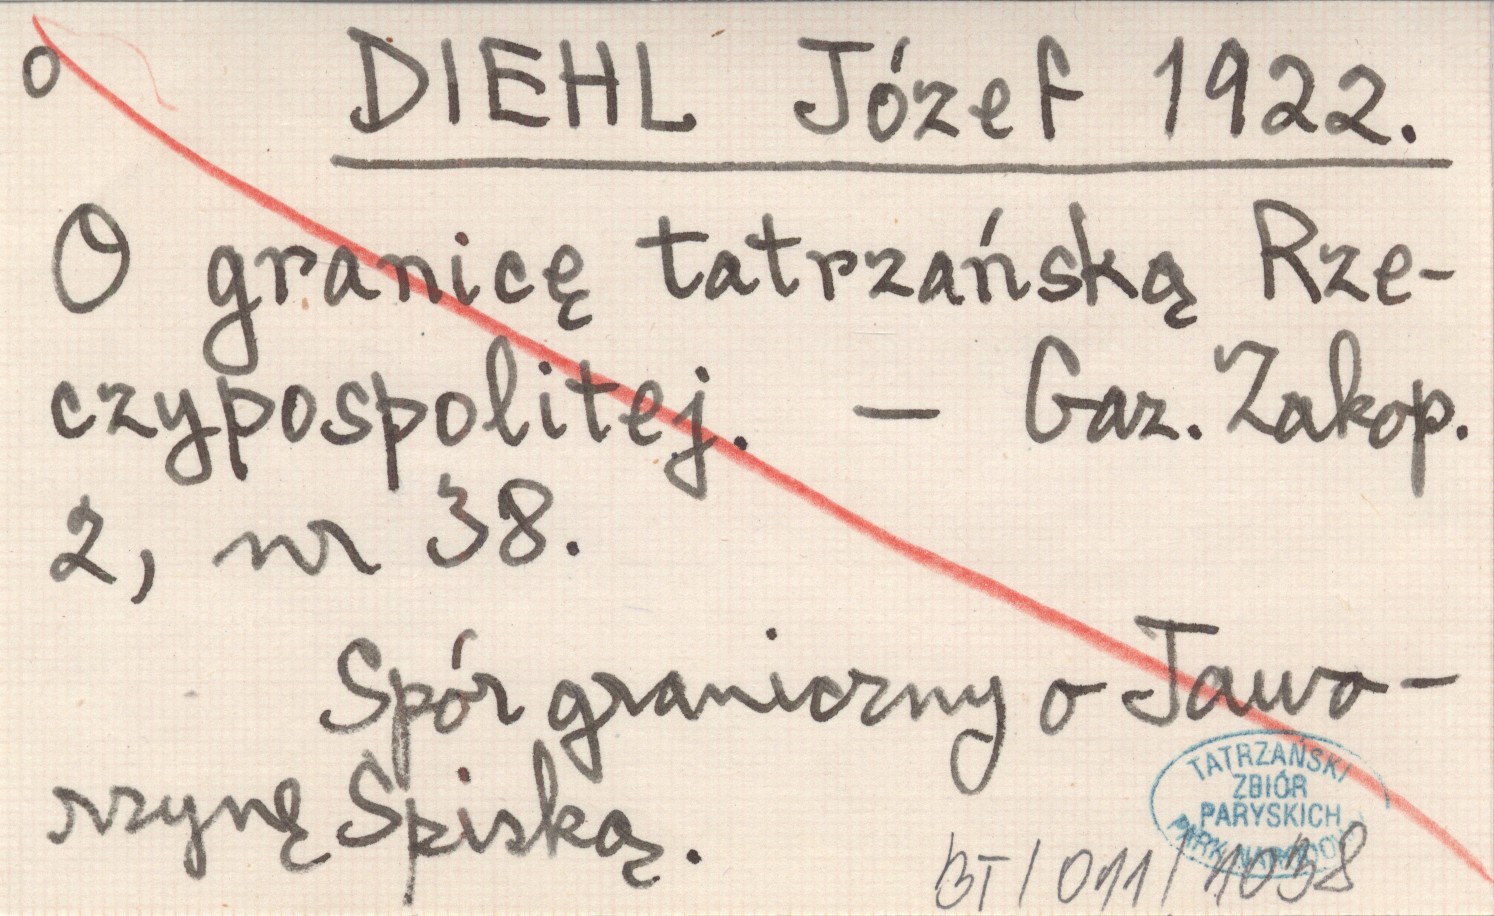 o DIEHL Józef 1922.
O granicę tatrzańską Rze-
czypospolitej. — Gaz. Zakop.
2, nr 38.
Spór graniczny o Jawo-
rzynę Spiską.
TATRZAŃSKI
ZBIÓR
PARYSKICH
PARK NARODOWY
BT / 011 / 1038